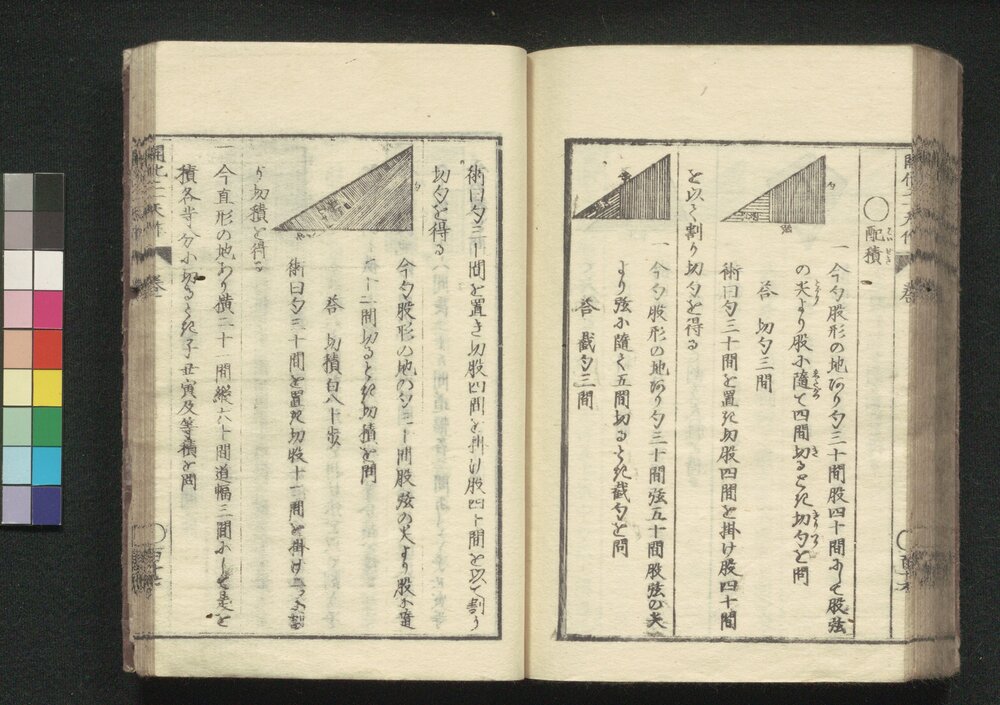 ○配積
一 今勾股形の地あり勾三十間股四十間にして股弦
の尖より股に隨て四間切るとき切勾を問
答 切勾三間
術曰勾三十間を置き切股四間を掛け股四十間
を以て割り切勾を得る
一 今勾股形の地あり勾三十間弦五十間股弦の尖
より弦に隨て五間切るとき截勾を問
答 截勾三間
術曰勾三十間を置き切股四間を掛け股四十間を以て割り
切勾を得る
今勾股形の地の勾三十間股弦の尖より股に隨
十二間切るとき切積を問
答 切積百八十歩
術曰勾三十間を置き切股十二間を掛け
り切積を得る
一 今直形の地あり横二十一間縦六十間道幅三間にして是を
積各等分に切るとき子丑寅及等積を問